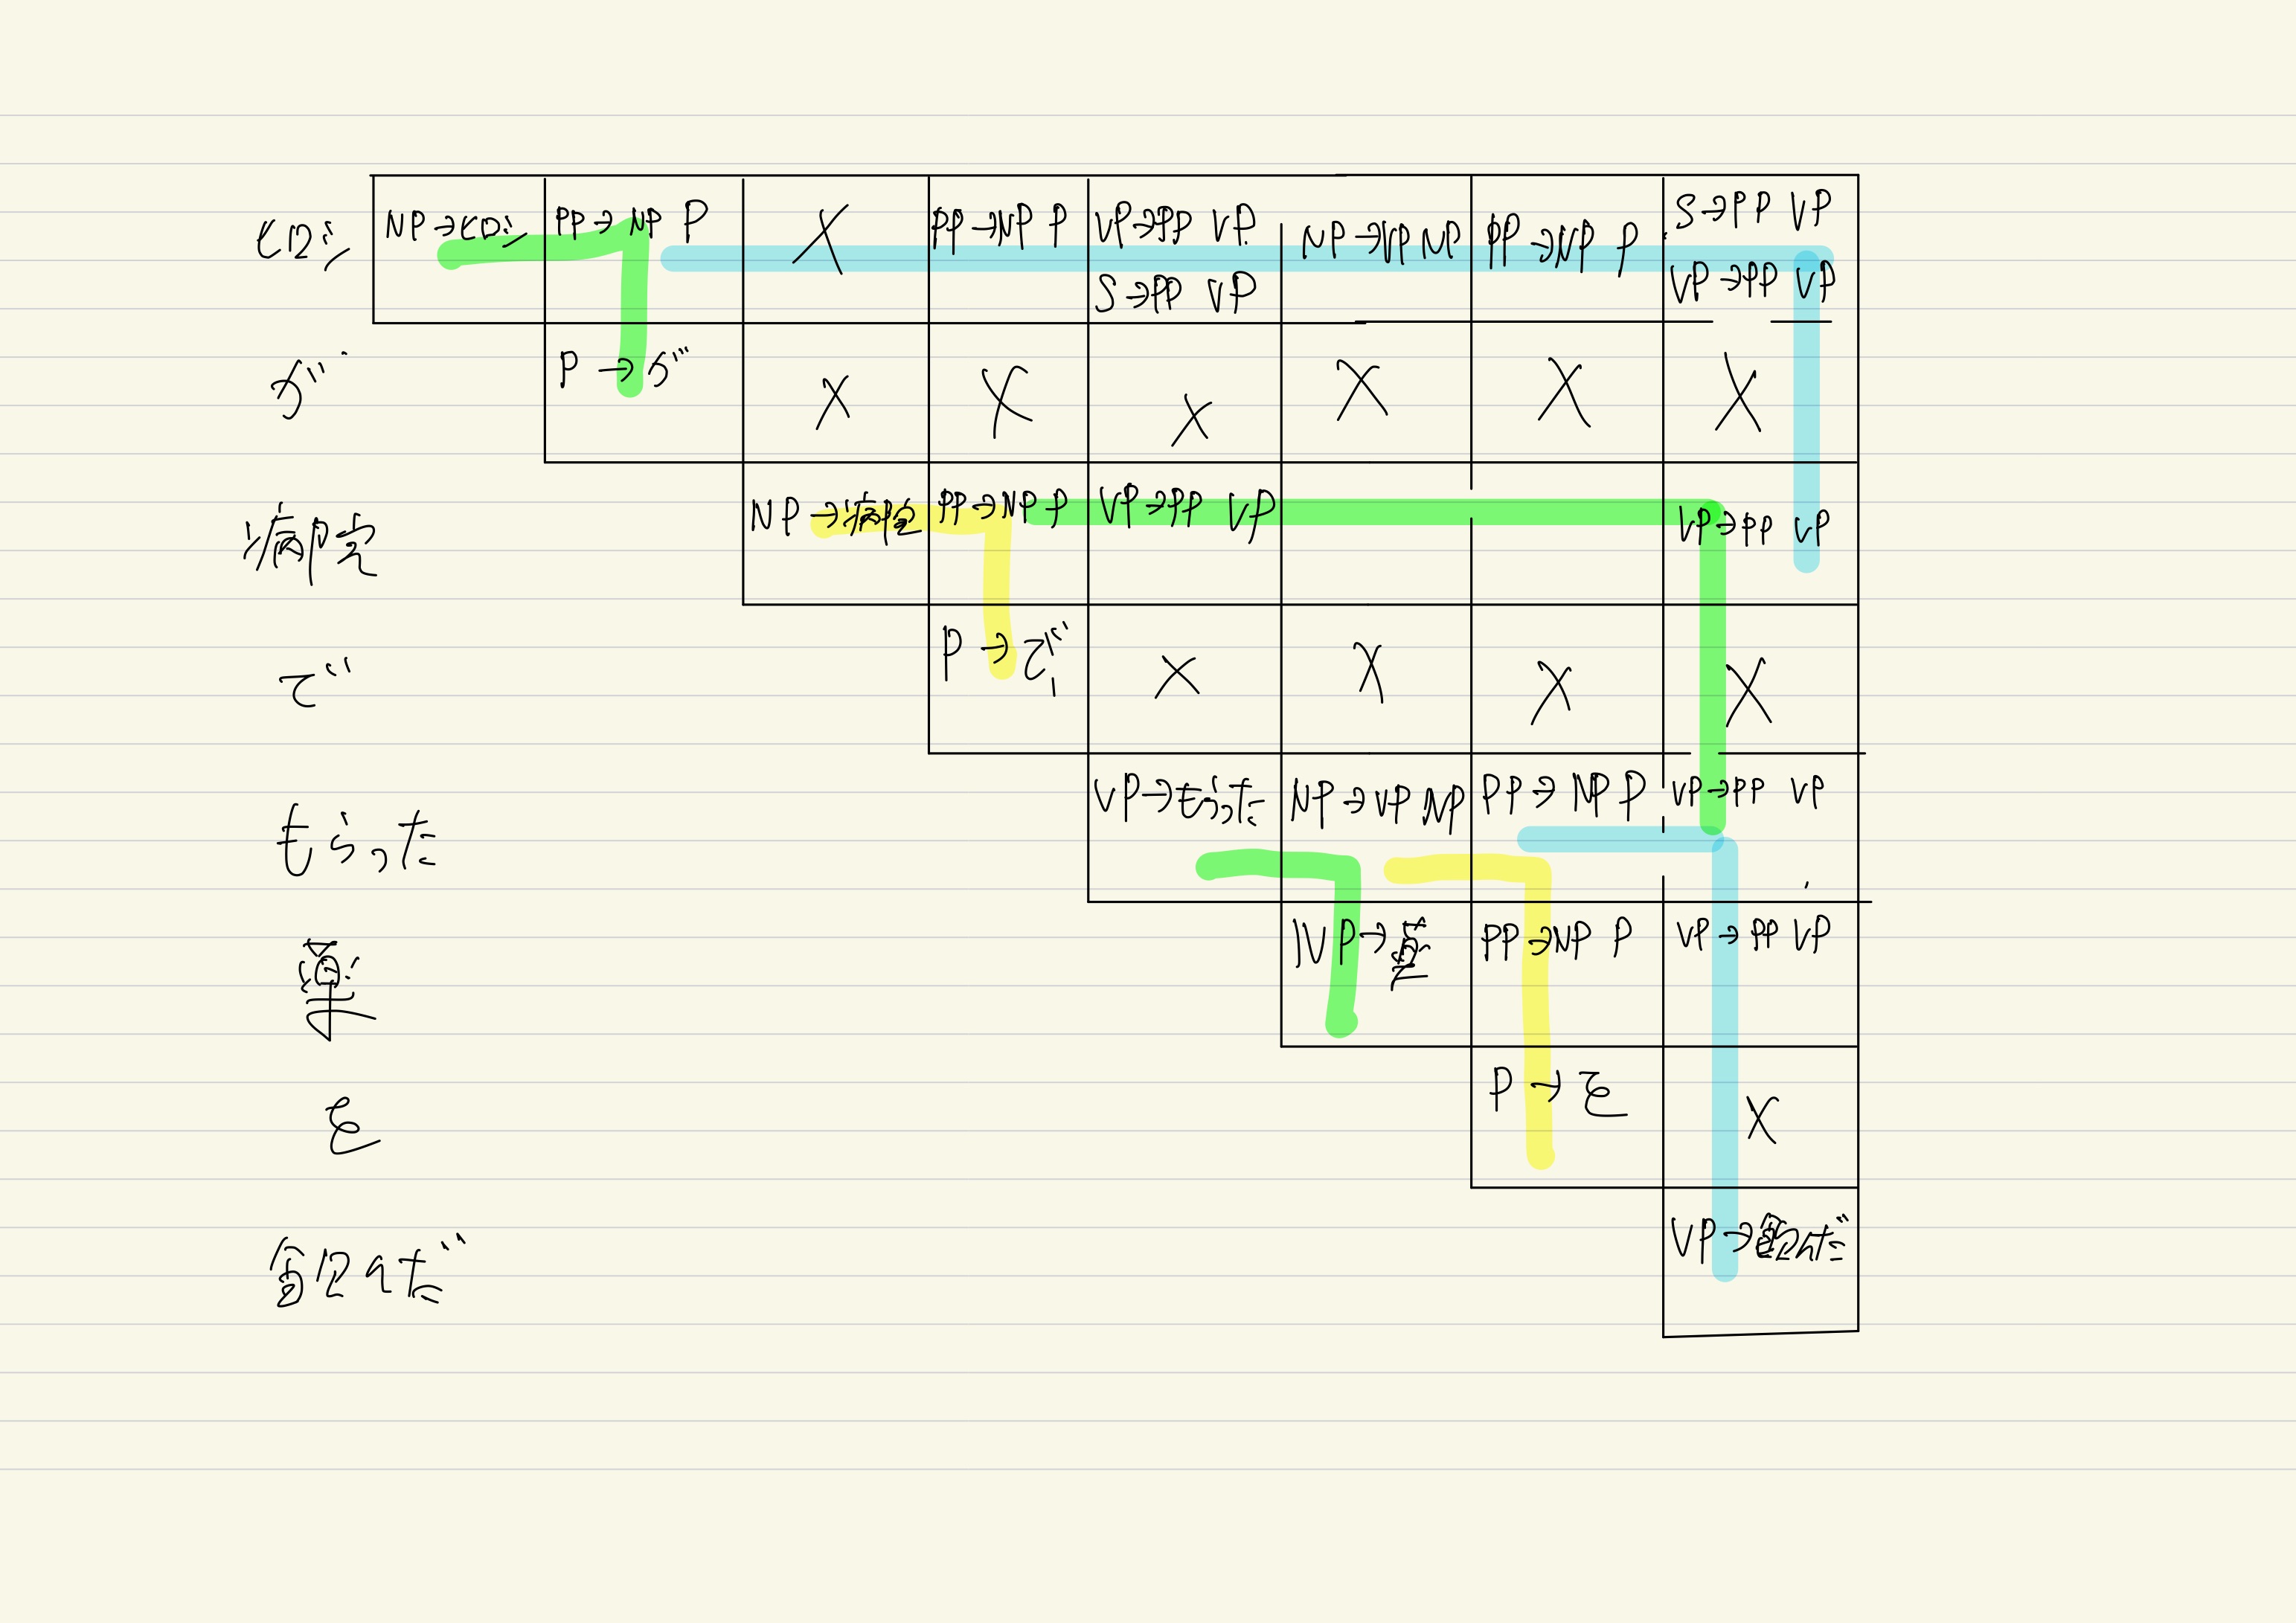 ヒロシ NP→ヒロシ PP→NP P X PP→NP P VP→PP VP NP→VP NP PP→NP P S→PP VP
S→PP VP VP→PP VP
が P→が X X X X X X
病院 NP→病院 PP→NP P VP→PP VP VP→PP VP
で P→で X X X X
もらった VP→もらった NP→VP NP PP→NP P VP→PP VP
薬 NP→薬 PP→NP P VP→PP VP
を P→を X
飲んだ VP→飲んだ